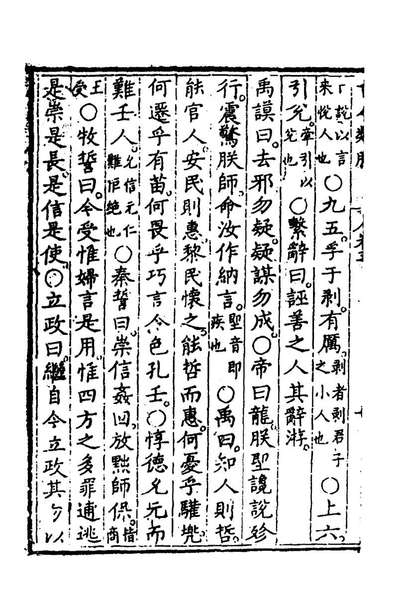 說以言來悅人也○九五孚于剥有厲剥者剥君子之小人也○上六
引兊牽引以兊也○繫辭曰誣善之人其辭游
禹謨曰去邪勿疑疑謀勿成○帝曰龍朕聖讒說殄
行震驚朕師命汝作納言聖音即疾也○禹曰知人則哲
能官人安民則惠黎民懷之能哲而惠何憂乎驩兠
何遷乎有苗何畏乎巧言令色孔壬○惇德允元而
難壬人允信元仁難拒絶也○秦誓曰崇信姦回放黜師保皆商
王受○牧誓曰今受惟婦言是用惟四方之多罪逋逃
是崇是長是信是使○立政曰繼自今立政其勿以